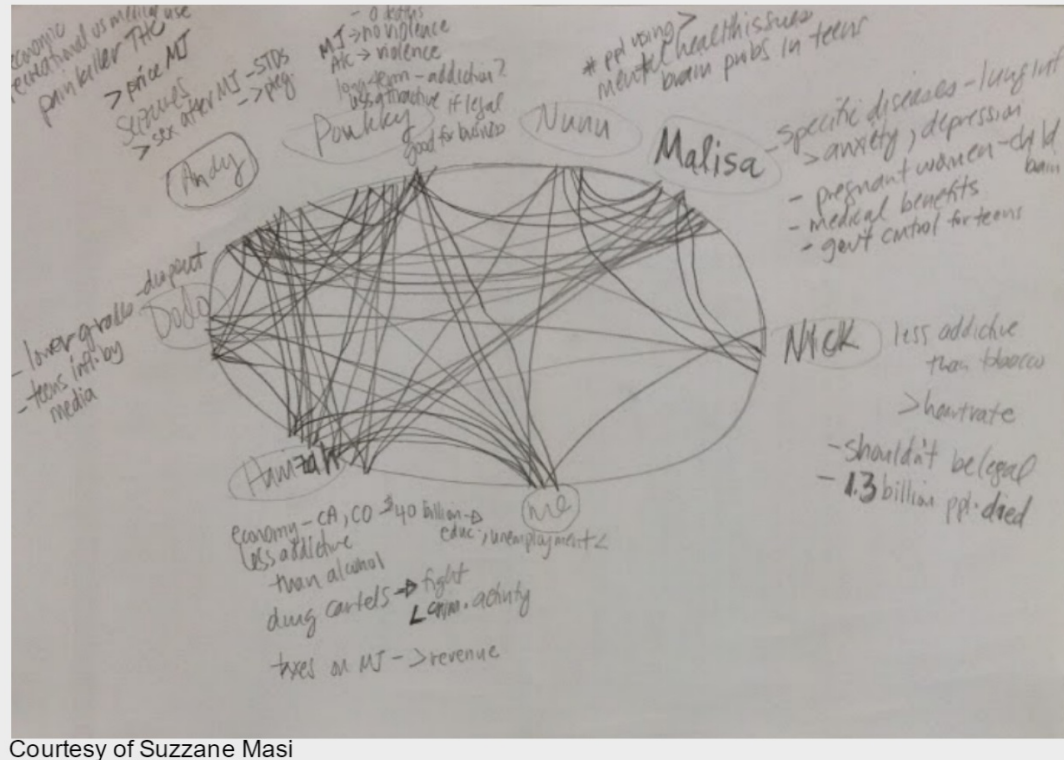 economic
recreational vs medical use
pain killer THC
> price MJ
seizures
> sex after MJ - STDs
-> preg
Andy
- 0 deaths
MJ -> no violence
Alc -> violence
long term - addiction?
less attractive if legal
good for business
Poukky
# ppl using >
mental health issues
brain probs in teens
Nunu
Malisa
- specific diseases - lung inf
> anxiety, depression
- pregnant women - child
brain
- medical benefits
- gov't control for teens
Nick
less addictive
than tobacco
> heartrate
- shouldn't be legal
- 1.3 billion ppl. died
me
Hamzah
economy - CA, CO $40 billion ->
educ., unemployment <
less addictive
than alcohol
drug cartels -> fight
< crim. activity
taxes on MJ - > revenue
Dodo
- lower grades - dropout
- teens infl. by
media
Courtesy of Suzzane Masi